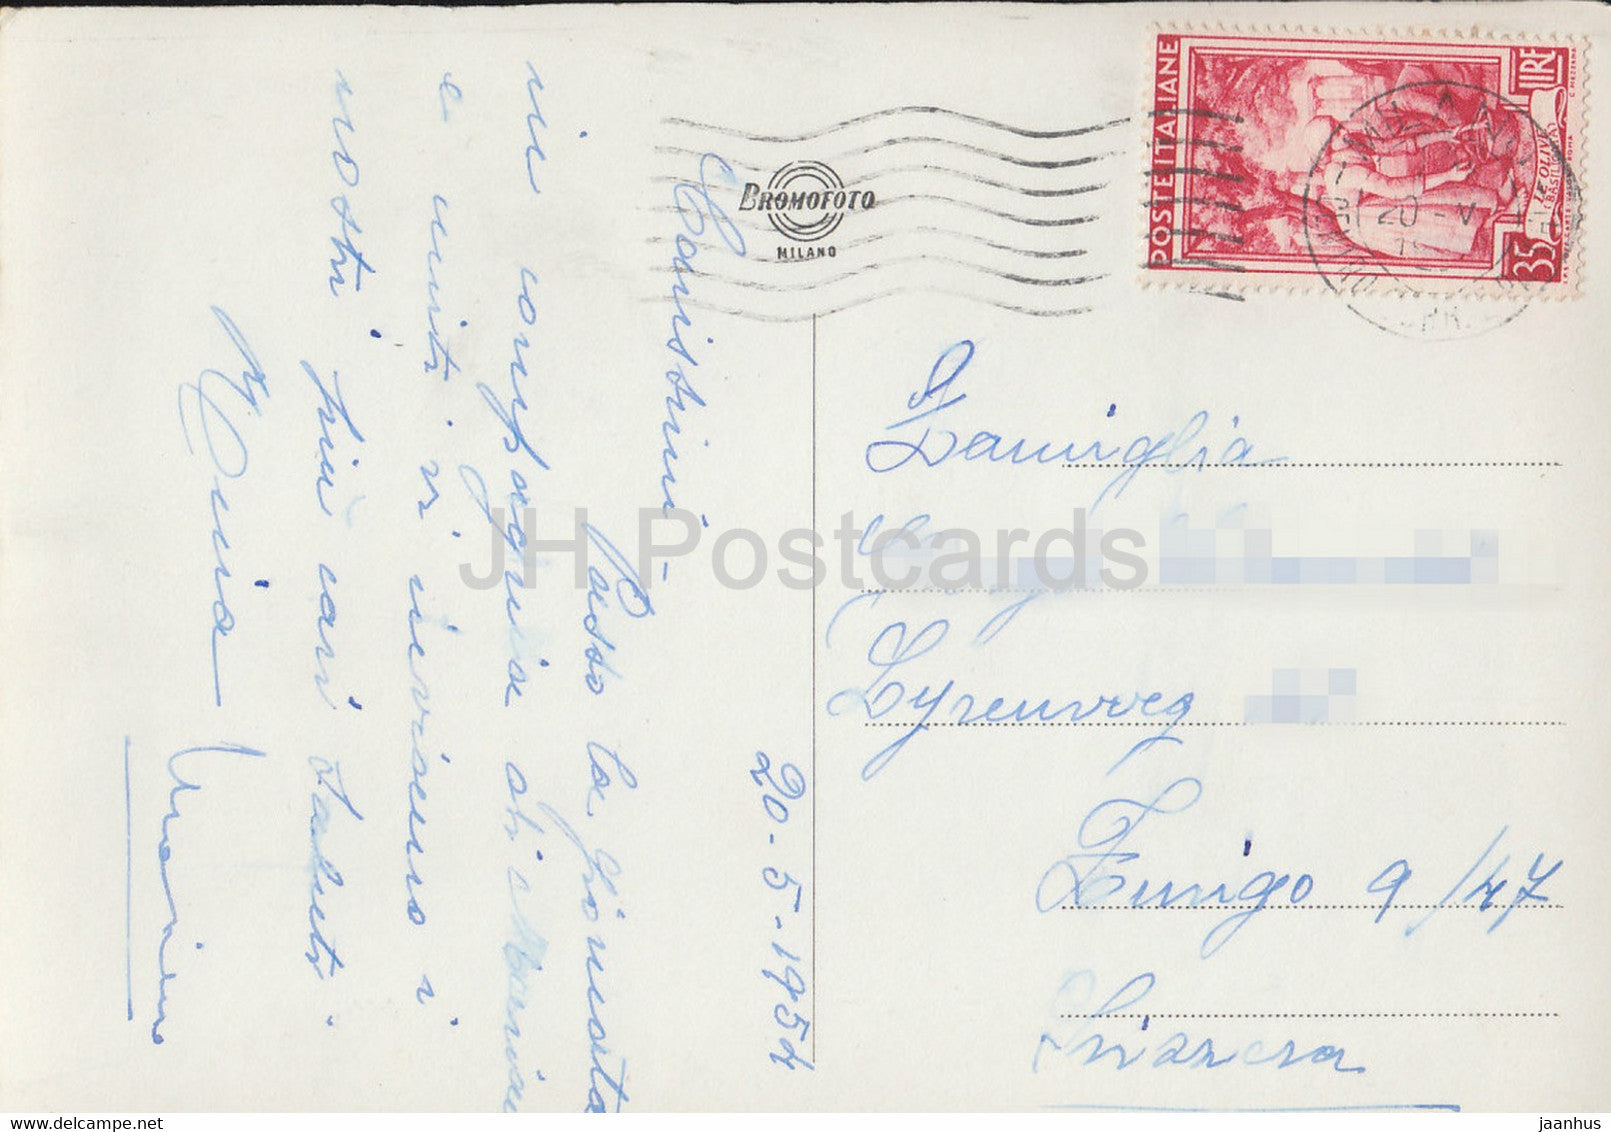 POSTE ITALIANE
LIRE
35
LE OLIVE
C. MEZZANA
MILANO
20 - V
BROMOFOTO
MILANO
20-5-1954
Carissimi -
Passo la giornata
in compagnia di Mariano
e uniti vi inviamo i
nostri più cari saluti.
Famiglia
Lyrenweg
Zurigo 9/47
Svizzera
JH Postcards
jaanhus